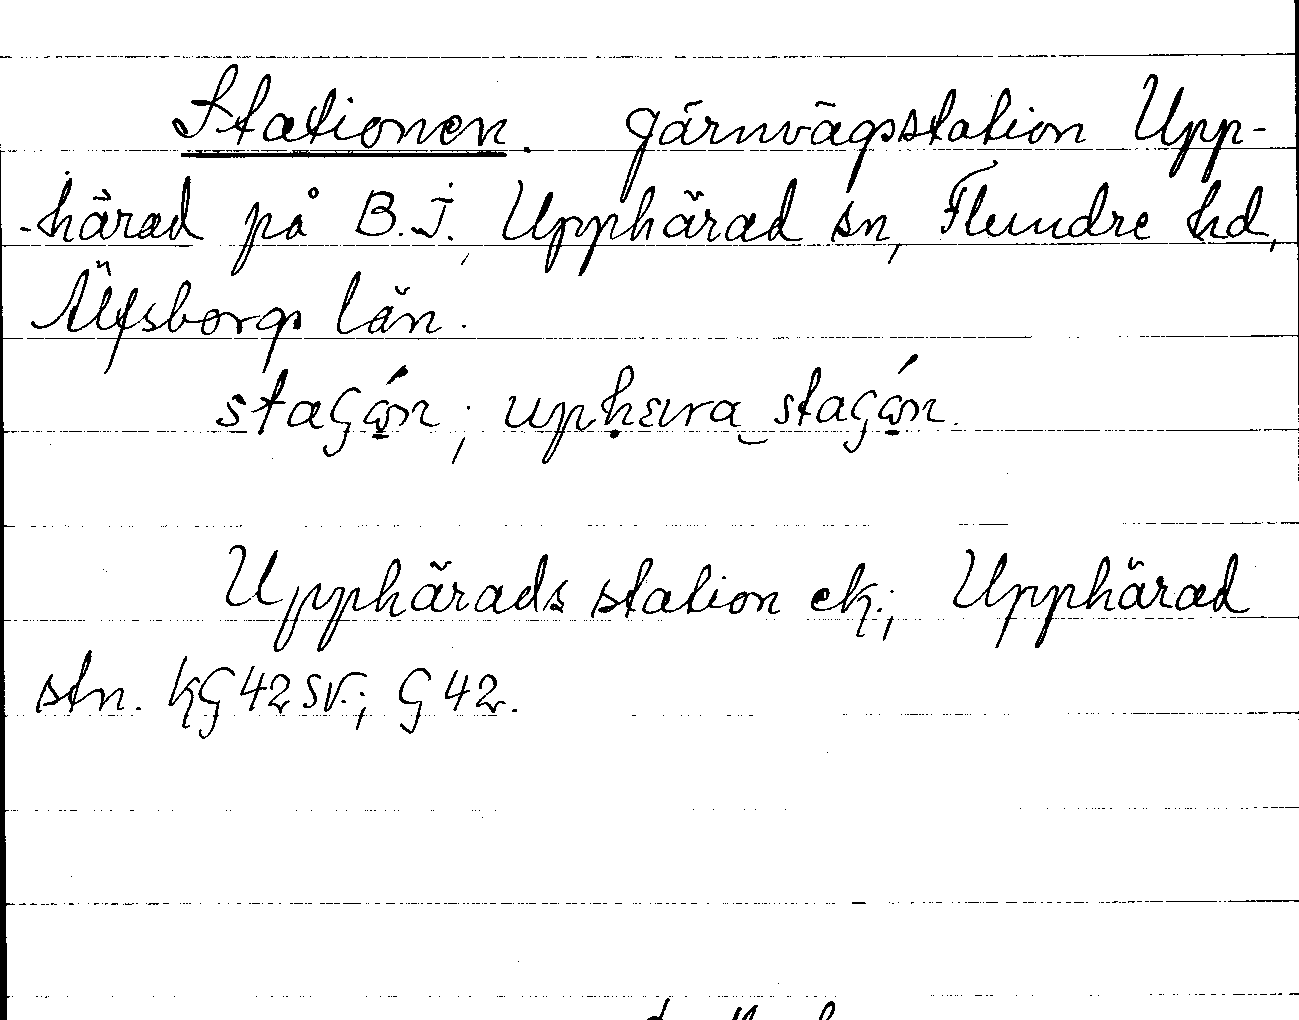 Stationen. Järnvägsstation Upp-
-härad på B.J., Upphärad sn, Flundre hd,
Älfsborgs län.
staʃo̱ń; uphæra staʃo̱ń.
Upphärads station ek.; Upphärad
stn. KG 42 SV.; G 42.